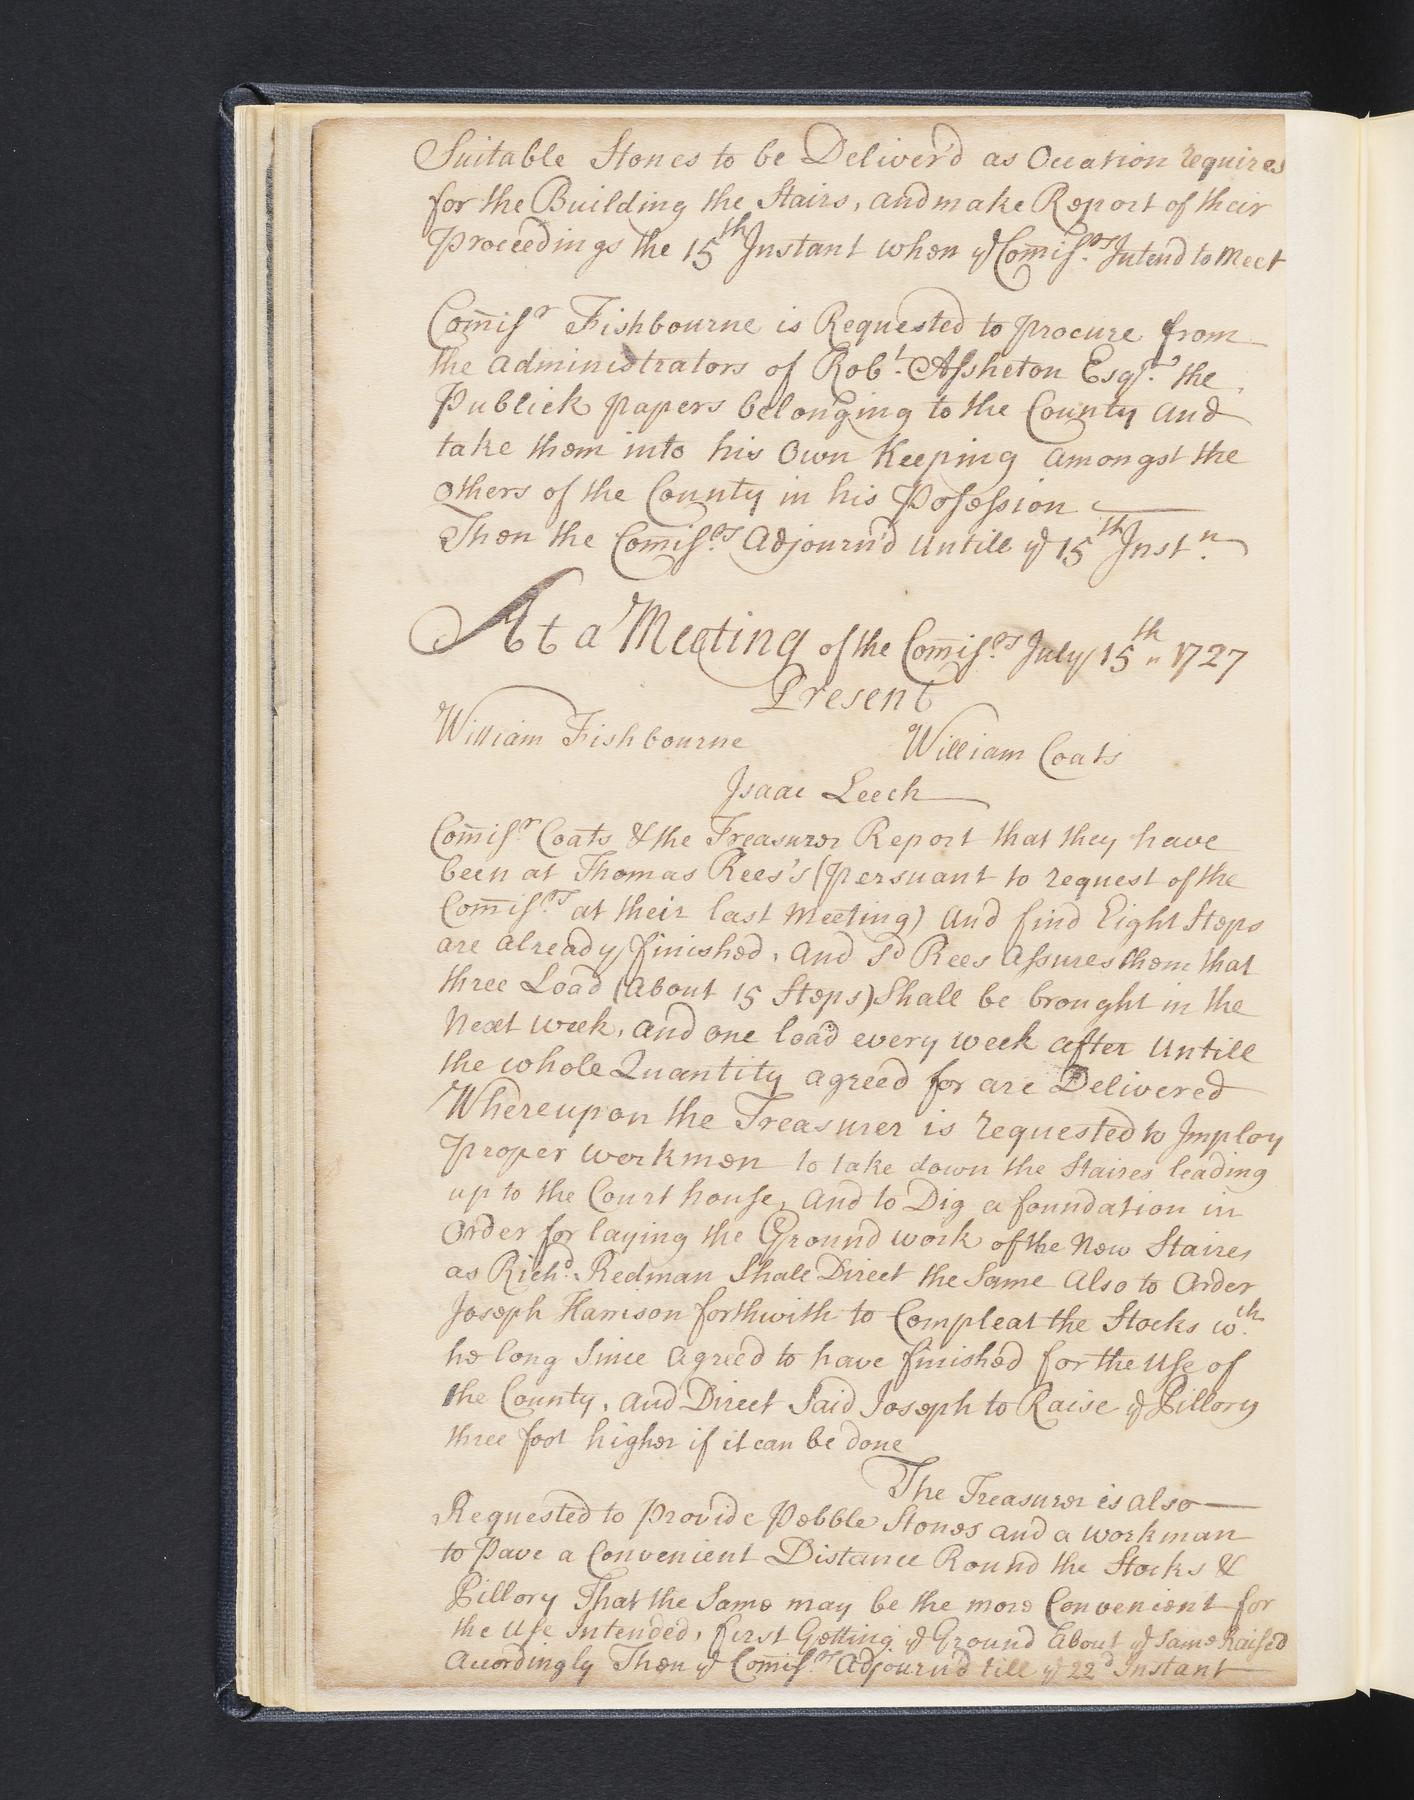 Suitable Stones to be Deliver'd as Occation requires
for the Building the Stairs, and make Report of their
Proceedings the 15th Instant when ye Comissrs Intend to Meet
Comissr Fishbourne is Requested to procure from
the Administrators of Robt. Assheton Esqr. the
Publick papers belonging to the County and
take them into his Own Keeping amongst the
Others of the County in his Posession
Then the Comissrs Adjourn'd Untill ye 15th Instn.
At a Meeting of the Comissrs July 15th 1727
Present
William Fishbourne William Coats
Isaac Leech
Comissr Coats & the Treasurer Report that they have
been at Thomas Rees's (persuant to request of the
Comissrs at their last Meeting) And find Eight Steps
are already finished, And sd Rees Assures them that
three Load (About 15 Steps) Shall be brought in the
Next week, and one load every week after Untill
the whole Quantity agreed for are Delivered
Whereupon the Treasurer is requested to Imploy
Proper workmen to take down the Staires leading
up to the Court house, and to Dig a foundation in
Order for laying the Ground work of the New Staires
as Richd. Redman Shall Direct the Same Also to Order
Joseph Harrison forthwith to Compleat the Stocks wch.
he long Since Agreed to have finished for the Use of
the County, and Direct Said Joseph to Raise ye Pillory
three foot higher if it can be done
The Treasurer is also
Requested to Provide Pebble Stones and a workman
to Pave a Convenient Distance Round the Stocks &
Pillory That the Same may be the more Convenient for
the Use Intended, first Getting ye Ground About ye Same Raised
Accordingly Then ye Comissrs Adjourn'd till ye 22d Instant